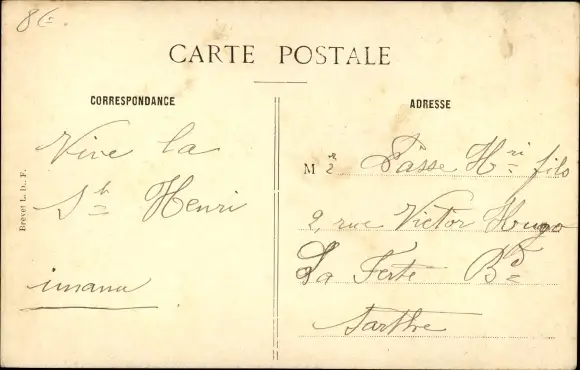 86.
CARTE POSTALE
CORRESPONDANCE
Vive la
St Henri
ADRESSE
Mr
Hri fils
2, rue Victor Hugo
La Ferté Bd
Sarthe
Brevet L. D., F.